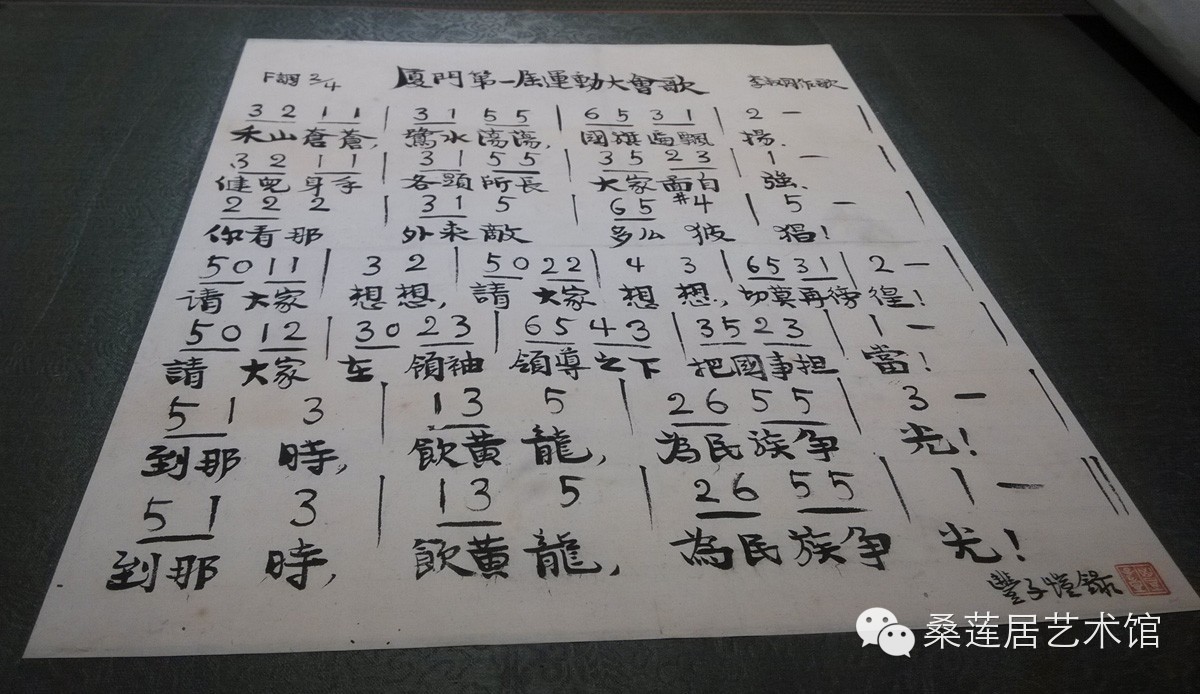 F調 2/4 厦門第一届運動大會歌 李叔同作歌
3 2 1 1 | 3 1 5 5 | 6 5 3 1 | 2 — |
禾山蒼蒼, 鷺水湯湯, 國旗遍飄揚.
3 2 1 1 | 3 1 5 5 | 3 5 2 3 | 1 — |
健兒身手 各顯所長 大家圖自強.
2 2 2 | 3 1 5 | 6 5 #4 | 5 — |
你看那 外来敵 多么 披猖!
5 0 1 1 | 3 2 | 5 0 2 2 | 4 3 | 6 5 3 1 | 2 — |
請 大家 想想, 請 大家 想想, 切莫再徬徨!
5 0 1 2 | 3 0 2 3 | 6 5 4 3 | 3 5 2 3 | 1 — |
請 大家 在 領袖 領導之下 把國事担當!
5 1 3 | 1 3 5 | 2 6 5 5 | 3 — |
到那時, 飲黄龍, 為民族争光!
5 1 3 | 1 3 5 | 2 6 5 5 | 1 — ‖
到那時, 飲黄龍, 為民族争光!
豐子愷錄
桑莲居艺术馆